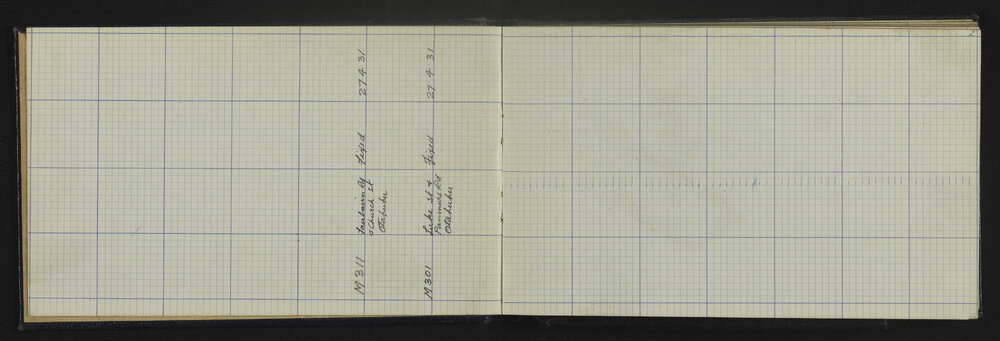 M 311 Fairburn Rd Fixed 27 4 31
& Church St
Otahuhu
M 301 Luke St & Fixed 27 4 31
Panmure Rd
Otahuhu
2